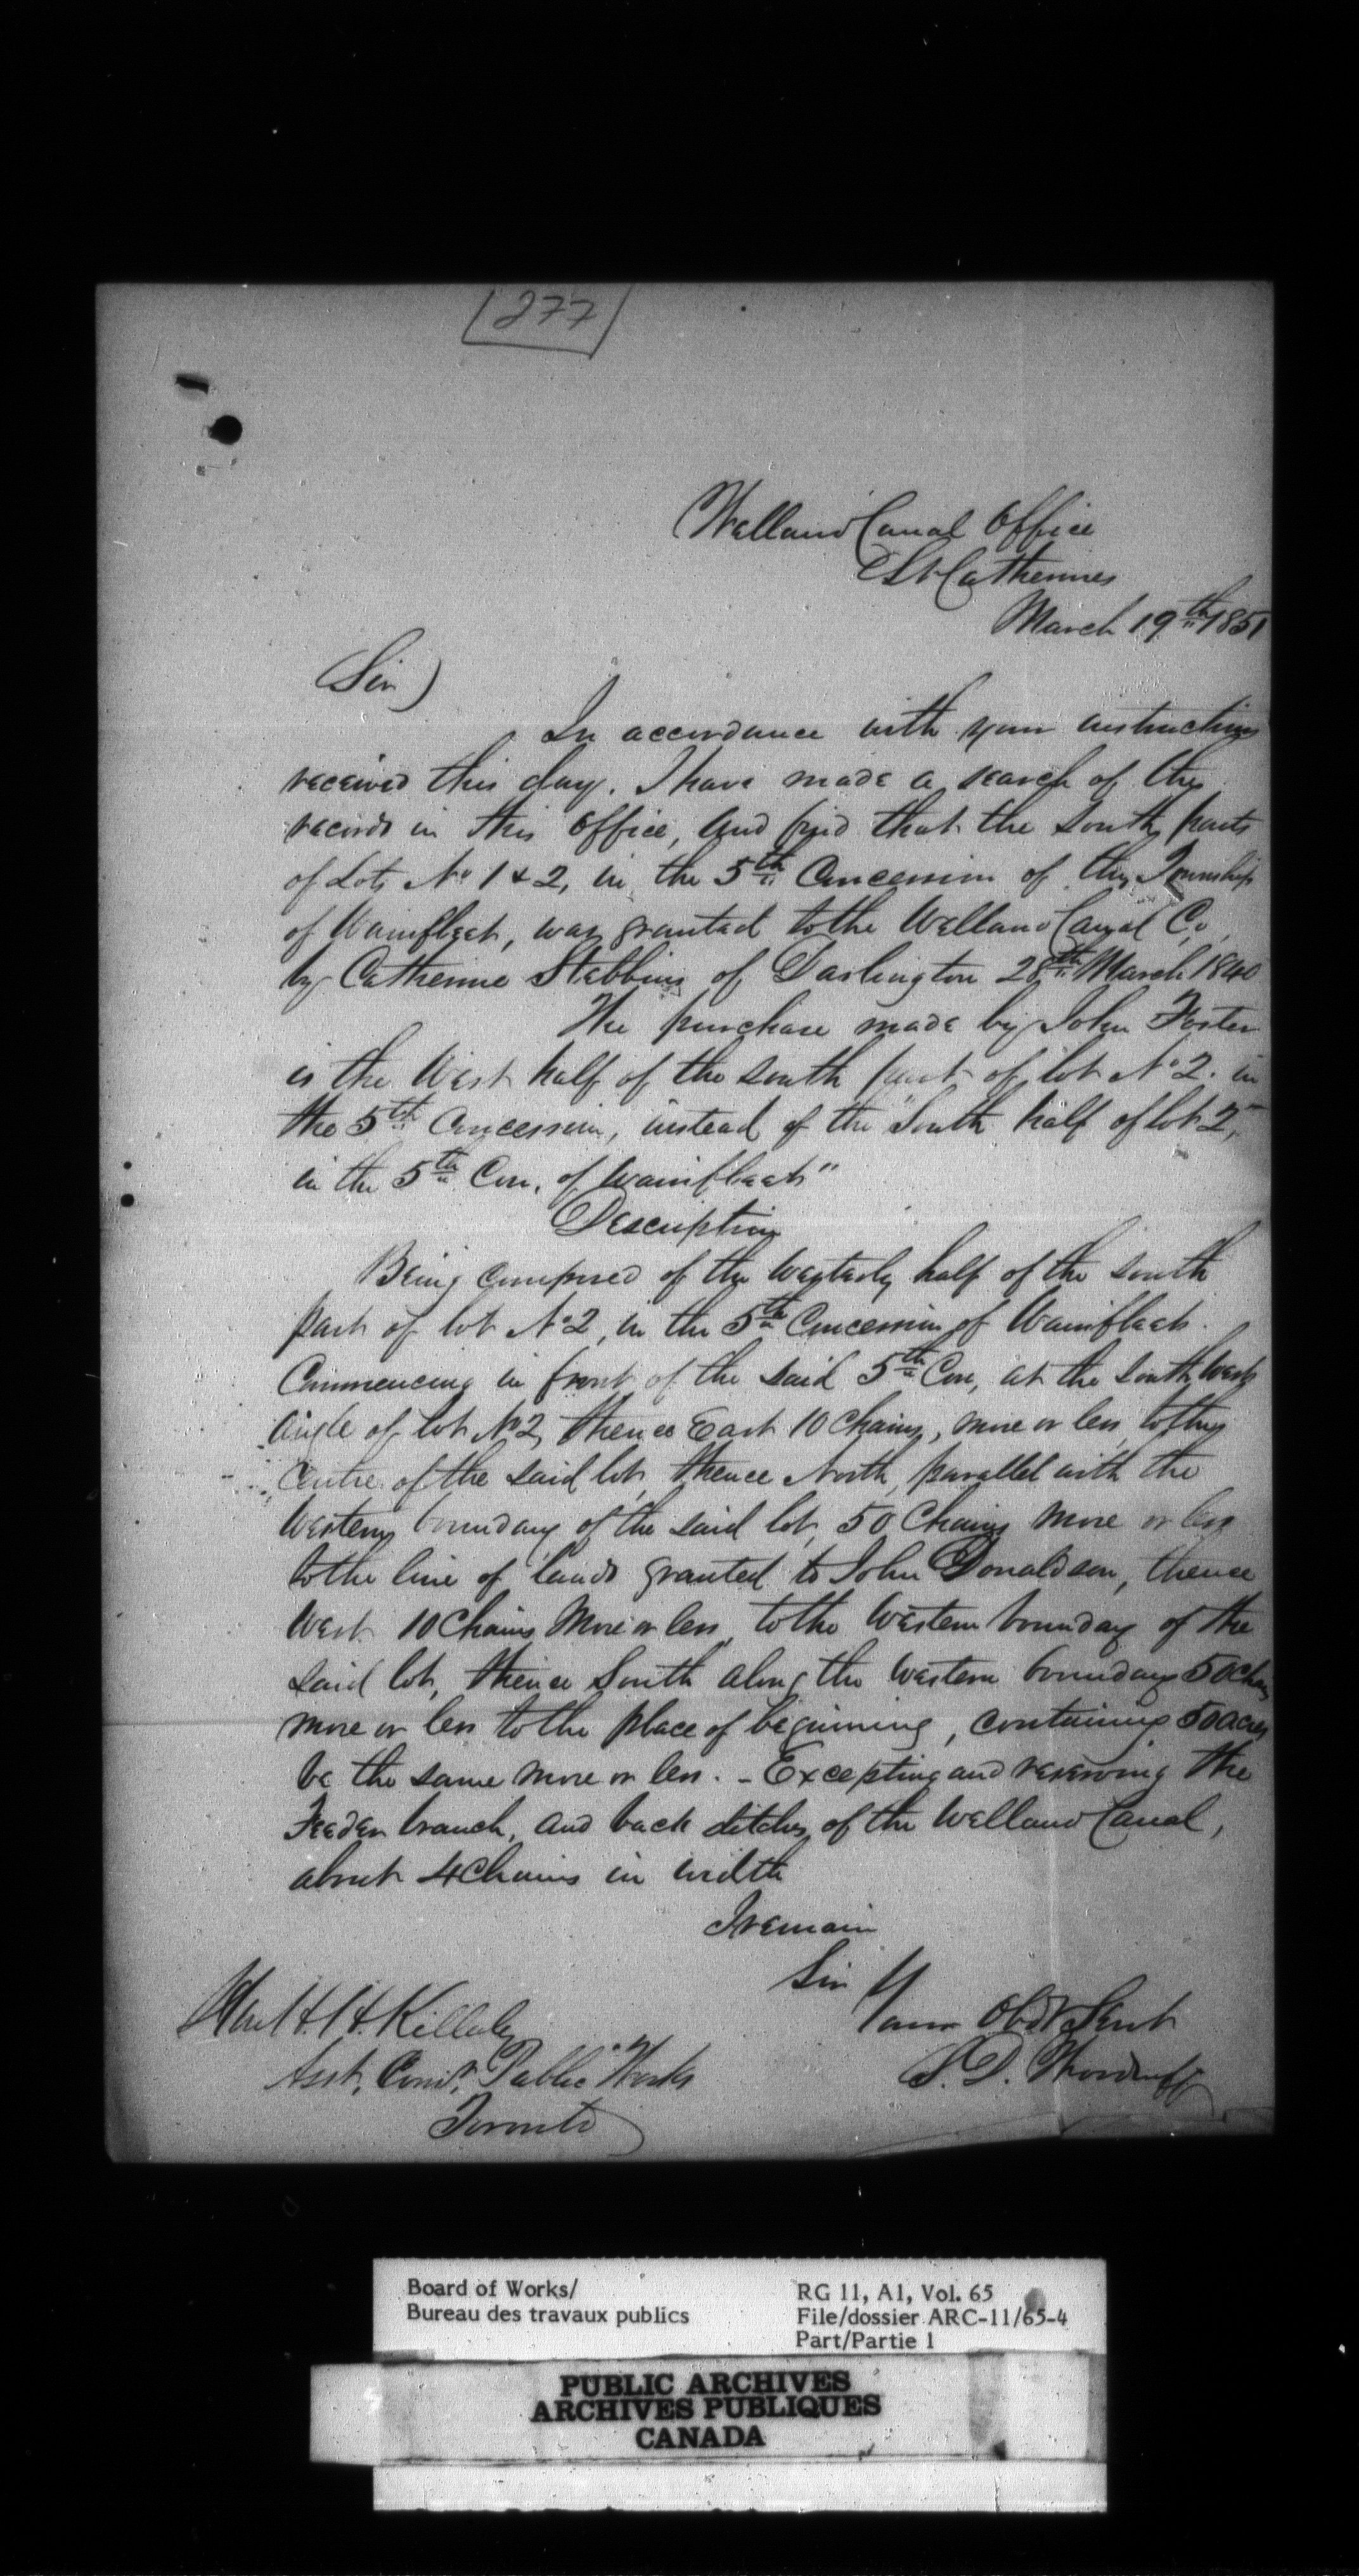 277
Welland Canal Office
St Catherines
March 19th 1851
Sir
In accordance with your instructions
received this day. I have made a search of the
records in this Office, and find that the South parts
of Lots No 1 & 2, in the 5th Concession of the Township
of Wainfleet, was granted to the Welland Canal Co,
by Catherine Stebbins of Darlington 28th March 1840
The purchase made by John Foster
is the West half of the South part of lot No 2. in
the 5th Concession, instead of the "South half of lot 2,
in the 5th Con. of Wainfleet"
Description
Being composed of the Westerly half of the South
part of lot No 2, in the 5th Concession of Wainfleet.
Commencing in front of the said 5th Con, at the South West
Angle of lot No 2, thence East 10 Chains, more or less, to the
Centre of the said lot, thence North, parallel with the
Western boundary of the said lot, 50 Chains more or less
to the line of lands granted to John Donaldson, thence
West 10 Chains more or less, to the Western boundary of the
said lot, thence South along the Western boundary 50 Chains
more or less to the place of beginning, containing 50 acres
be the same more or less. - Excepting and reserving the
Feeder branch, and back ditches of the Welland Canal,
about 4 Chains in width
I remain
Sir
Your Obdt Servt
S. D. Woodruff
Honl H. H. Killaly
Asst, Comr, Public Works
Toronto
Board of Works/
Bureau des travaux publics
RG 11, A1, Vol. 65
File/dossier ARC-11/65-4
Part/Partie 1
PUBLIC ARCHIVES
ARCHIVES PUBLIQUES
CANADA